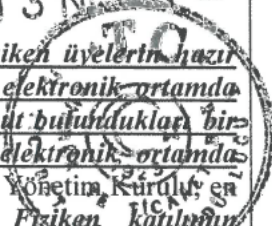 iken üyelerin hazır
elektronik ortamda
bulundukları bir
elektronik ortamda
Yönetim Kurulu, en
Fiziken katılımın